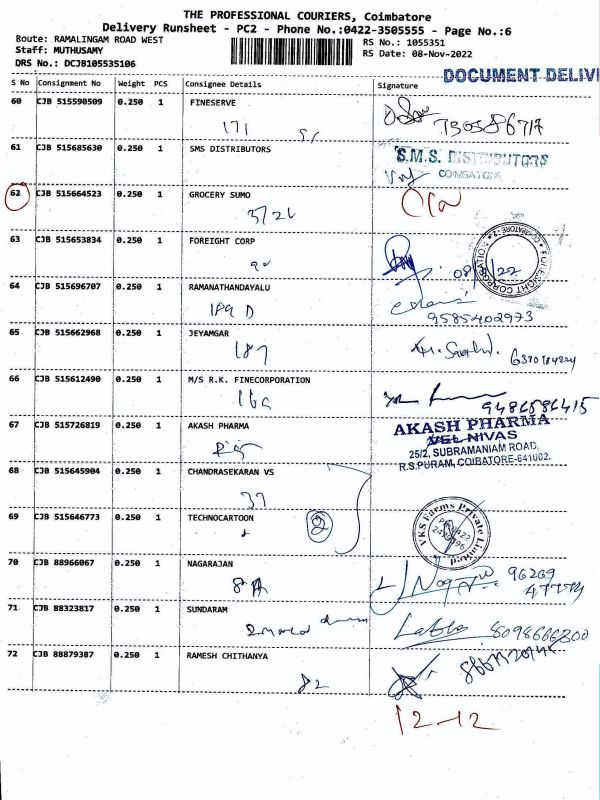 THE PROFESSIONAL COURIERS, Coimbatore
Delivery Runsheet - PC2 - Phone No.:0422-3505555 - Page No.:6
Route: RAMALINGAM ROAD WEST
RS No.: 1055351
Staff: MUTHUSAMY
RS Date: 08-Nov-2022
DRS No.: DCJB105535106
DOCUMENT DELIV
S No Consignment No Weight PCS Consignee Details Signature
60 CJB 515590509 0.250 1 FINESERVE
171
61 CJB 515685630 0.250 1 SMS DISTRIBUTORS
S.M.S. DISTRIBUTORS
COIMBATORE
62 CJB 515664523 0.250 1 GROCERY SUMO
63 CJB 515653834 0.250 1 FOREIGHT CORP
08/11/22
FORESIGHT CORPORATION COIMBATORE
64 CJB 515696707 0.250 1 RAMANATHANDAYALU
189 D
9585402973
65 CJB 515662968 0.250 1 JEYAMGAR
187
66 CJB 515612490 0.250 1 M/S R.K. FINECORPORATION
9486586415
67 CJB 515726819 0.250 1 AKASH PHARMA
AKASH PHARMA
VEL NIVAS
25/2, SUBRAMANIAM ROAD,
R.S.PURAM, COIBATORE-641002.
68 CJB 515645904 0.250 1 CHANDRASEKARAN VS
37
69 CJB 515646773 0.250 1 TECHNOCARTOON
2
VKS Farms Private Limited
70 CJB 88966067 0.250 1 NAGARAJAN
8A
71 CJB 88323817 0.250 1 SUNDARAM
8098666800
72 CJB 88879387 0.250 1 RAMESH CHITHANYA
82
12-12